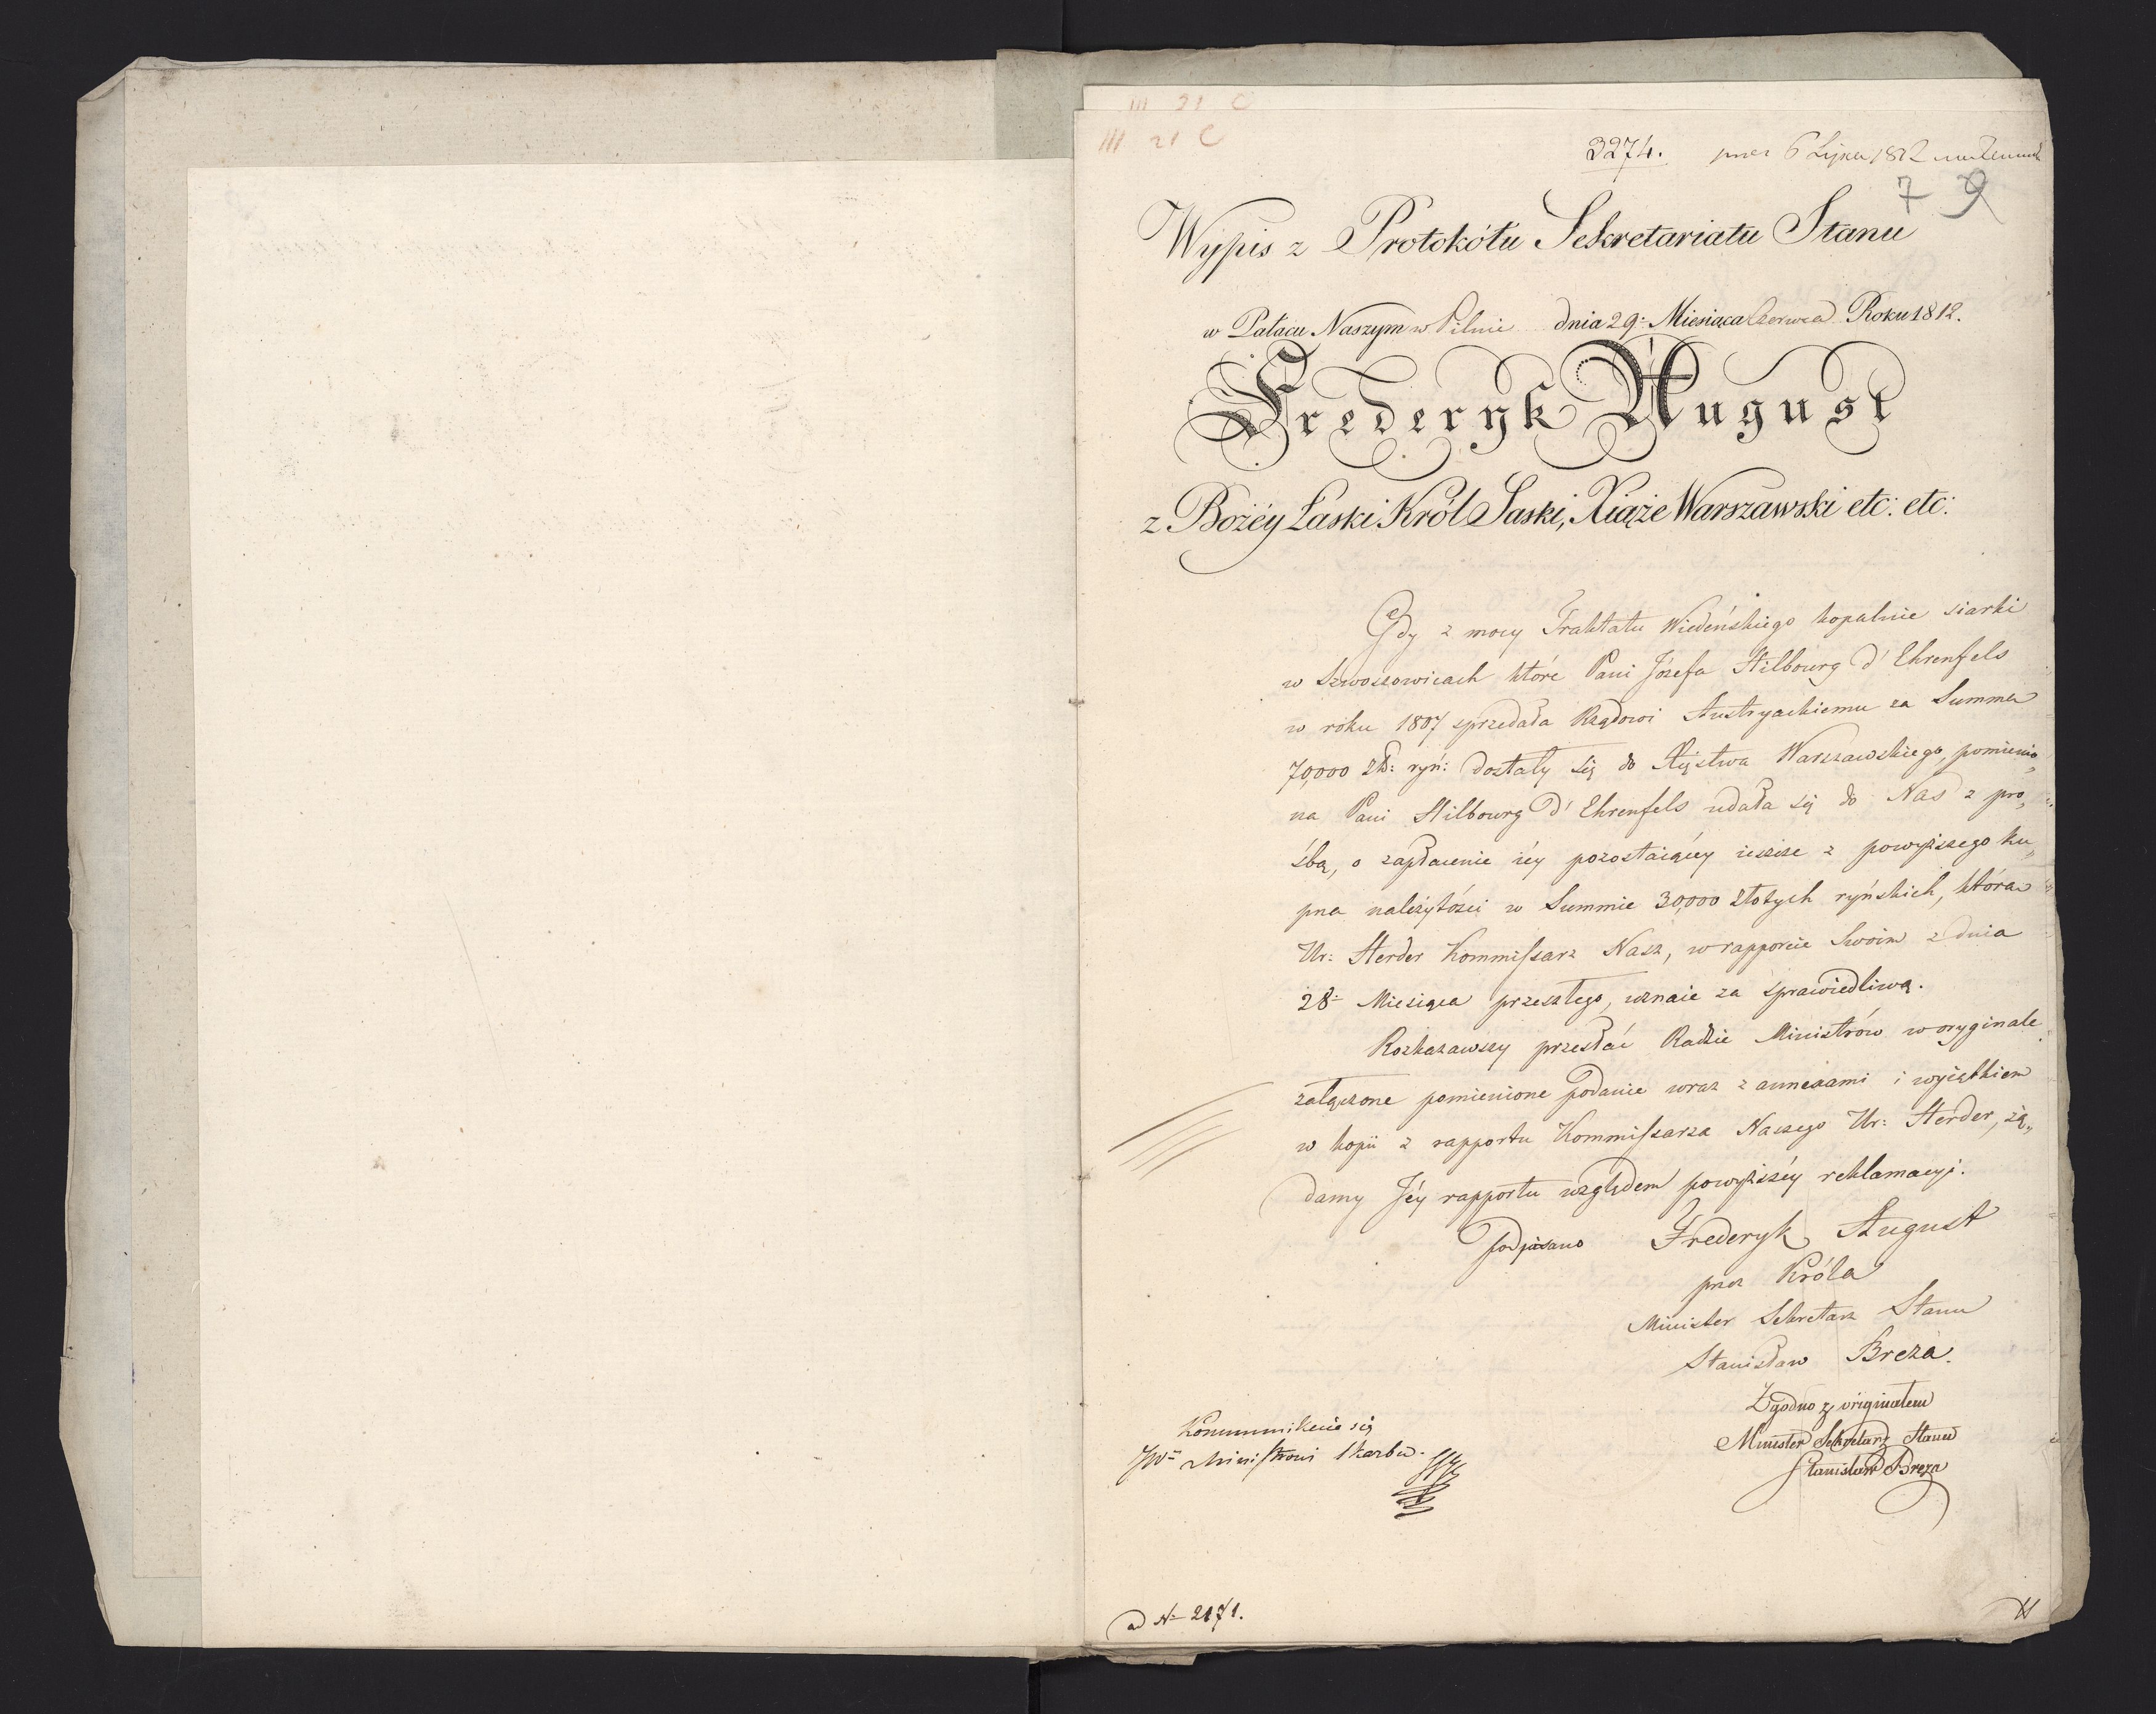 III 21 C
III 21 C
3274. 6 Lipca 1812
7 9
Wypis z Protokółu Sekretariatu Stanu
w Pałacu Naszym w Pilnie dnia 29. Miesiąca Czerwca Roku 1812.
Frederyk August
z Bożéy Łaski Król Saski, Xiąże Warszawski etc: etc:
Gdy z mocy Traktatu Wiedeńskiego kopalnie siarki
w Szwoszowicach które Pani Józefa Hilbourg d'Ehrenfels
w roku 1807 sprzedała Rządowi Austryackiemu za Summę
70,000 Zł: ryń: dostały się do Xięstwa Warszawskiego, pomienio„
na Pani Hilbourg d'Ehrenfels udała się do Nas z pro„
śbą, o zapłacenie iéy pozostaiącéy ieszcze z powyższego ku„
pna należytości w Summie 30,000 Złotych ryńskich, którą
Ur: Herder Kommissarz Nasz, w rapporcie Swoim z dnia
28. Miesiąca przeszłego, uznaie za sprawiedliwą.
Rozkazawszy przesłać Radzie Ministrów w oryginale
załączone pomienione podanie wraz z annexami i wyiątkiem
w kopii z rapportu Kommissarza Naszego Ur: Herder, żą„
damy Jéy rapportu względem powyższéy reklamacyi.
podpisano Frederyk August
przez Króla
Minister Sekretarz Stanu
Stanisław Breza.
Zgodno z originałem
Minister Sekretarz Stanu
Stanisław Breza
Kommunikuie się
JW. Ministrowi Skarbu.
ad No 2171.